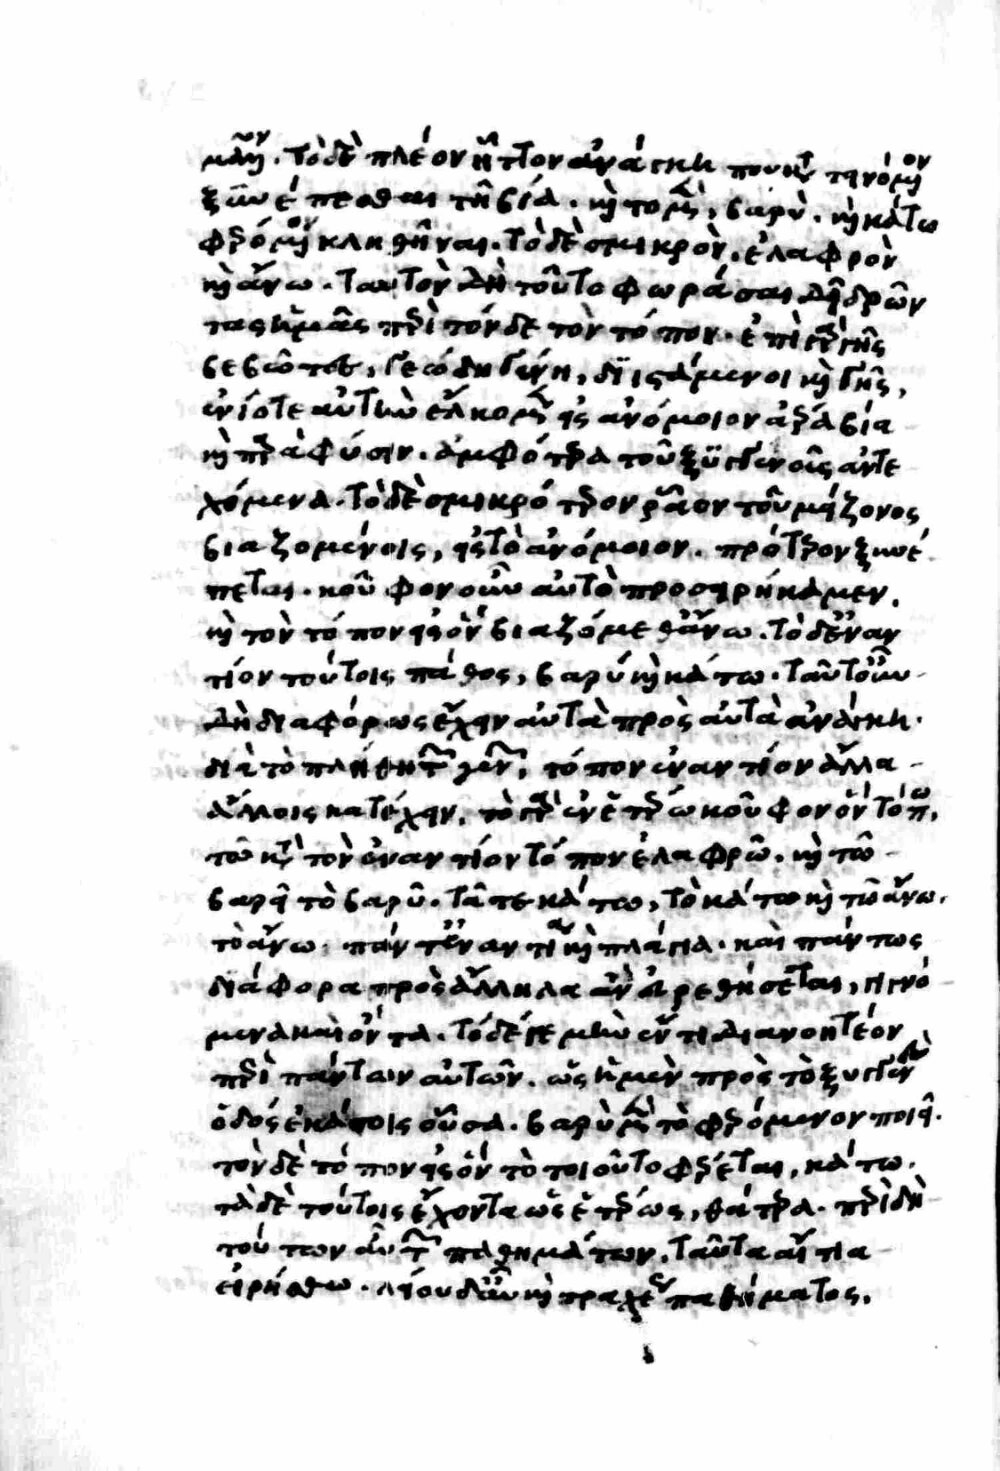 μᾶλλον. τὸ δὲ πλέον ἧττον ἀνάγκη που κατατεινόμενον
ξυνέπεσθαι τῇ βίᾳ. καὶ τὸ μὲν, βαρὺ. καὶ κάτω
φερόμενον κληθῆναι. τὸ δὲ σμικρὸν, ἐλαφρὸν
καὶ ἄνω. ταυτὸν δὴ τοῦτο φωράσαι δεῖ δρῶν
τας ἡμᾶς περὶ τόνδε τὸν τόπον. ἐπὶ γὰρ γῆς
βεβῶτες, γεώδη γένη, διϊστάμενοι καὶ γῆς,
ἐνίοτε αὐτὴν ἕλκομεν εἰς ἀνόμοιον ἀέρα βίᾳ
καὶ παρὰ φύσιν. ἀμφότερα τοῦ ξυγγενοῦς ἀντε
χόμενα. τὸ δὲ σμικρότερον ῥᾶον τοῦ μείζονος
βιαζομένοις, εἰς τὸ ἀνόμοιον. πρότερον ξυνέ
πεται. κοῦφον οὖν αὐτὸ προσειρήκαμεν.
καὶ τὸν τόπον εἰς ὃν βιαζόμεθ' ἄνω. τὸ δ' ἐναν
τίον τούτοις πάθος, βαρύ καὶ κάτω. ταῦτ' οὖν
δὴ διαφόρως ἔχειν αὐτὰ πρὸς αὑτὰ ἀνάγκη.
διὰ τὸ πλήθη τῶν γενῶν, τόπον ἐναντίον ἄλλα
ἄλλοις κατέχειν. τὸ γὰρ ἐν ἑτέρω κοῦφον ὂν τόπω,
τῶ κατὰ τὸν ἐναντίον τόπον ἐλαφρῶ. καὶ τῶ
βαρεῖ τὸ βαρύ. τῶ τε κάτω, τὸ κάτω καὶ τῶ ἄνω.
τὸ ἄνω. πάντ' ἐναντία καὶ πλάγια. καὶ πάντως
διάφορα πρὸς ἄλληλα ἀνευρεθήσεται, γιγνό
μενα καὶ ὄντα. τόδε γε μὴν ἕν τι διανοητέον
περὶ πάντων αὐτῶν. ὡς ἡ μὲν πρὸς τὸ ξυγγενὲς
ὁδὸς ἑκάστοις οὖσα. βαρὺ μὲν τὸ φερόμενον ποιεῖ.
τὸν δὲ τόπον εἰς ὃν τὸ τοιοῦτο φέρεται, κάτω.
τὰ δὲ τούτοις ἔχοντα ὡς ἑτέρως, θάτερα. περὶ δὴ
τούτων αὖ τῶν παθημάτων, ταῦτα αἴτια
εἰρήσθω. λείου δ' αὖ καὶ τραχέος παθήματος.